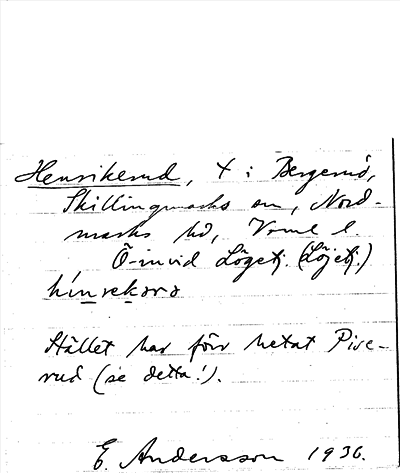 Henrikerud, + i Bergerud,
Skillingmarks sn, Nord-
marks hd, Vrml l.
Ö-invid Lögetj. (Löjetj.)
hínrekərə
Stället har förr hetat Pise-
rud (se detta!).
E. Andersson 1936.